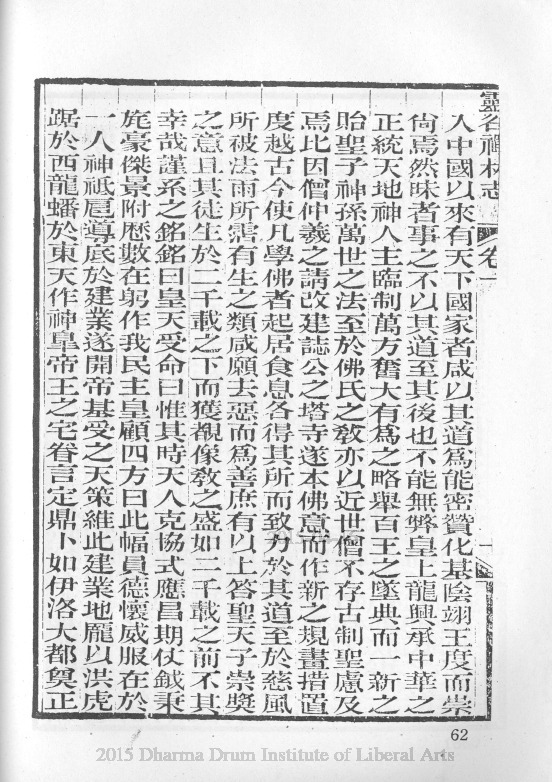 靈谷禪林志
卷一
一
入中國以來有天下國家者咸以其道爲能密贊化基陰翊王度而崇
尙焉然昧者事之不以其道至其後也不能無弊皇上龍興承中華之
正統天地神人主臨制萬方奮大有爲之略舉百王之墜典而一新之
貽聖子神孫萬世之法至於佛氏之敎亦以近世僧不存古制聖慮及
焉比因僧仲羲之請改建誌公之塔寺遂本佛意而作新之規畫措置
度越古今使凡學佛者起居食息各得其所而致力於其道至於慈風
所被法雨所霑有生之類咸願去惡而爲善庶有以上答聖天子崇獎
之意且其徒生於二千載之下而獲覩像敎之盛如二千載之前不其
幸哉謹系之銘銘曰皇天受命曰惟其時天人克協式應昌期仗鉞秉
旄豪傑景附歷數在躬作我民主皇顧四方曰此幅員德懷威服在於
一人神祇扈導底於建業遂開帝基受之天策維此建業地龐以洪虎
踞於西龍蟠於東天作神皐帝王之宅眷言定鼎卜如伊洛大都奠正
62
2015 Dharma Drum Institute of Liberal Arts